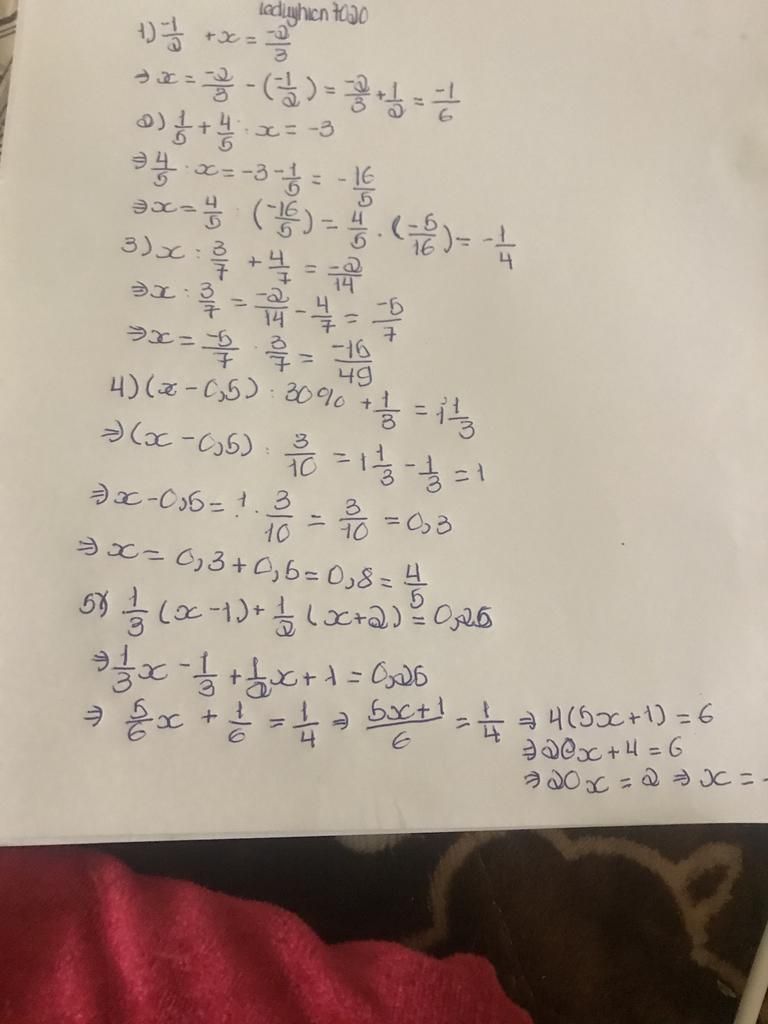 leduyhien7020
1) -1/2 + x = -2/3
⇒ x = -2/3 - (-1/2) = -2/3 + 1/2 = -1/6
2) 1/5 + 4/5 : x = -3
⇒ 4/5 : x = -3 - 1/5 = -16/5
⇒ x = 4/5 : (-16/5) = 4/5 . (-5/16) = -1/4
3) x : 3/7 + 4/7 = -2/14
⇒ x : 3/7 = -2/14 - 4/7 = -5/7
⇒ x = -5/7 . 3/7 = -15/49
4) (x - 0,5) : 30% + 1/3 = 1 1/3
⇒ (x - 0,5) : 3/10 = 1 1/3 - 1/3 = 1
⇒ x - 0,5 = 1 . 3/10 = 3/10 = 0,3
⇒ x = 0,3 + 0,5 = 0,8 = 4/5
5) 1/3 (x - 1) + 1/2 (x + 2) = 0,25
⇒ 1/3 x - 1/3 + 1/2 x + 1 = 0,25
⇒ 5/6 x + 1/6 = 1/4 ⇒ (5x + 1)/6 = 1/4 ⇒ 4(5x + 1) = 6
⇒ 20x + 4 = 6
⇒ 20x = 2 ⇒ x =